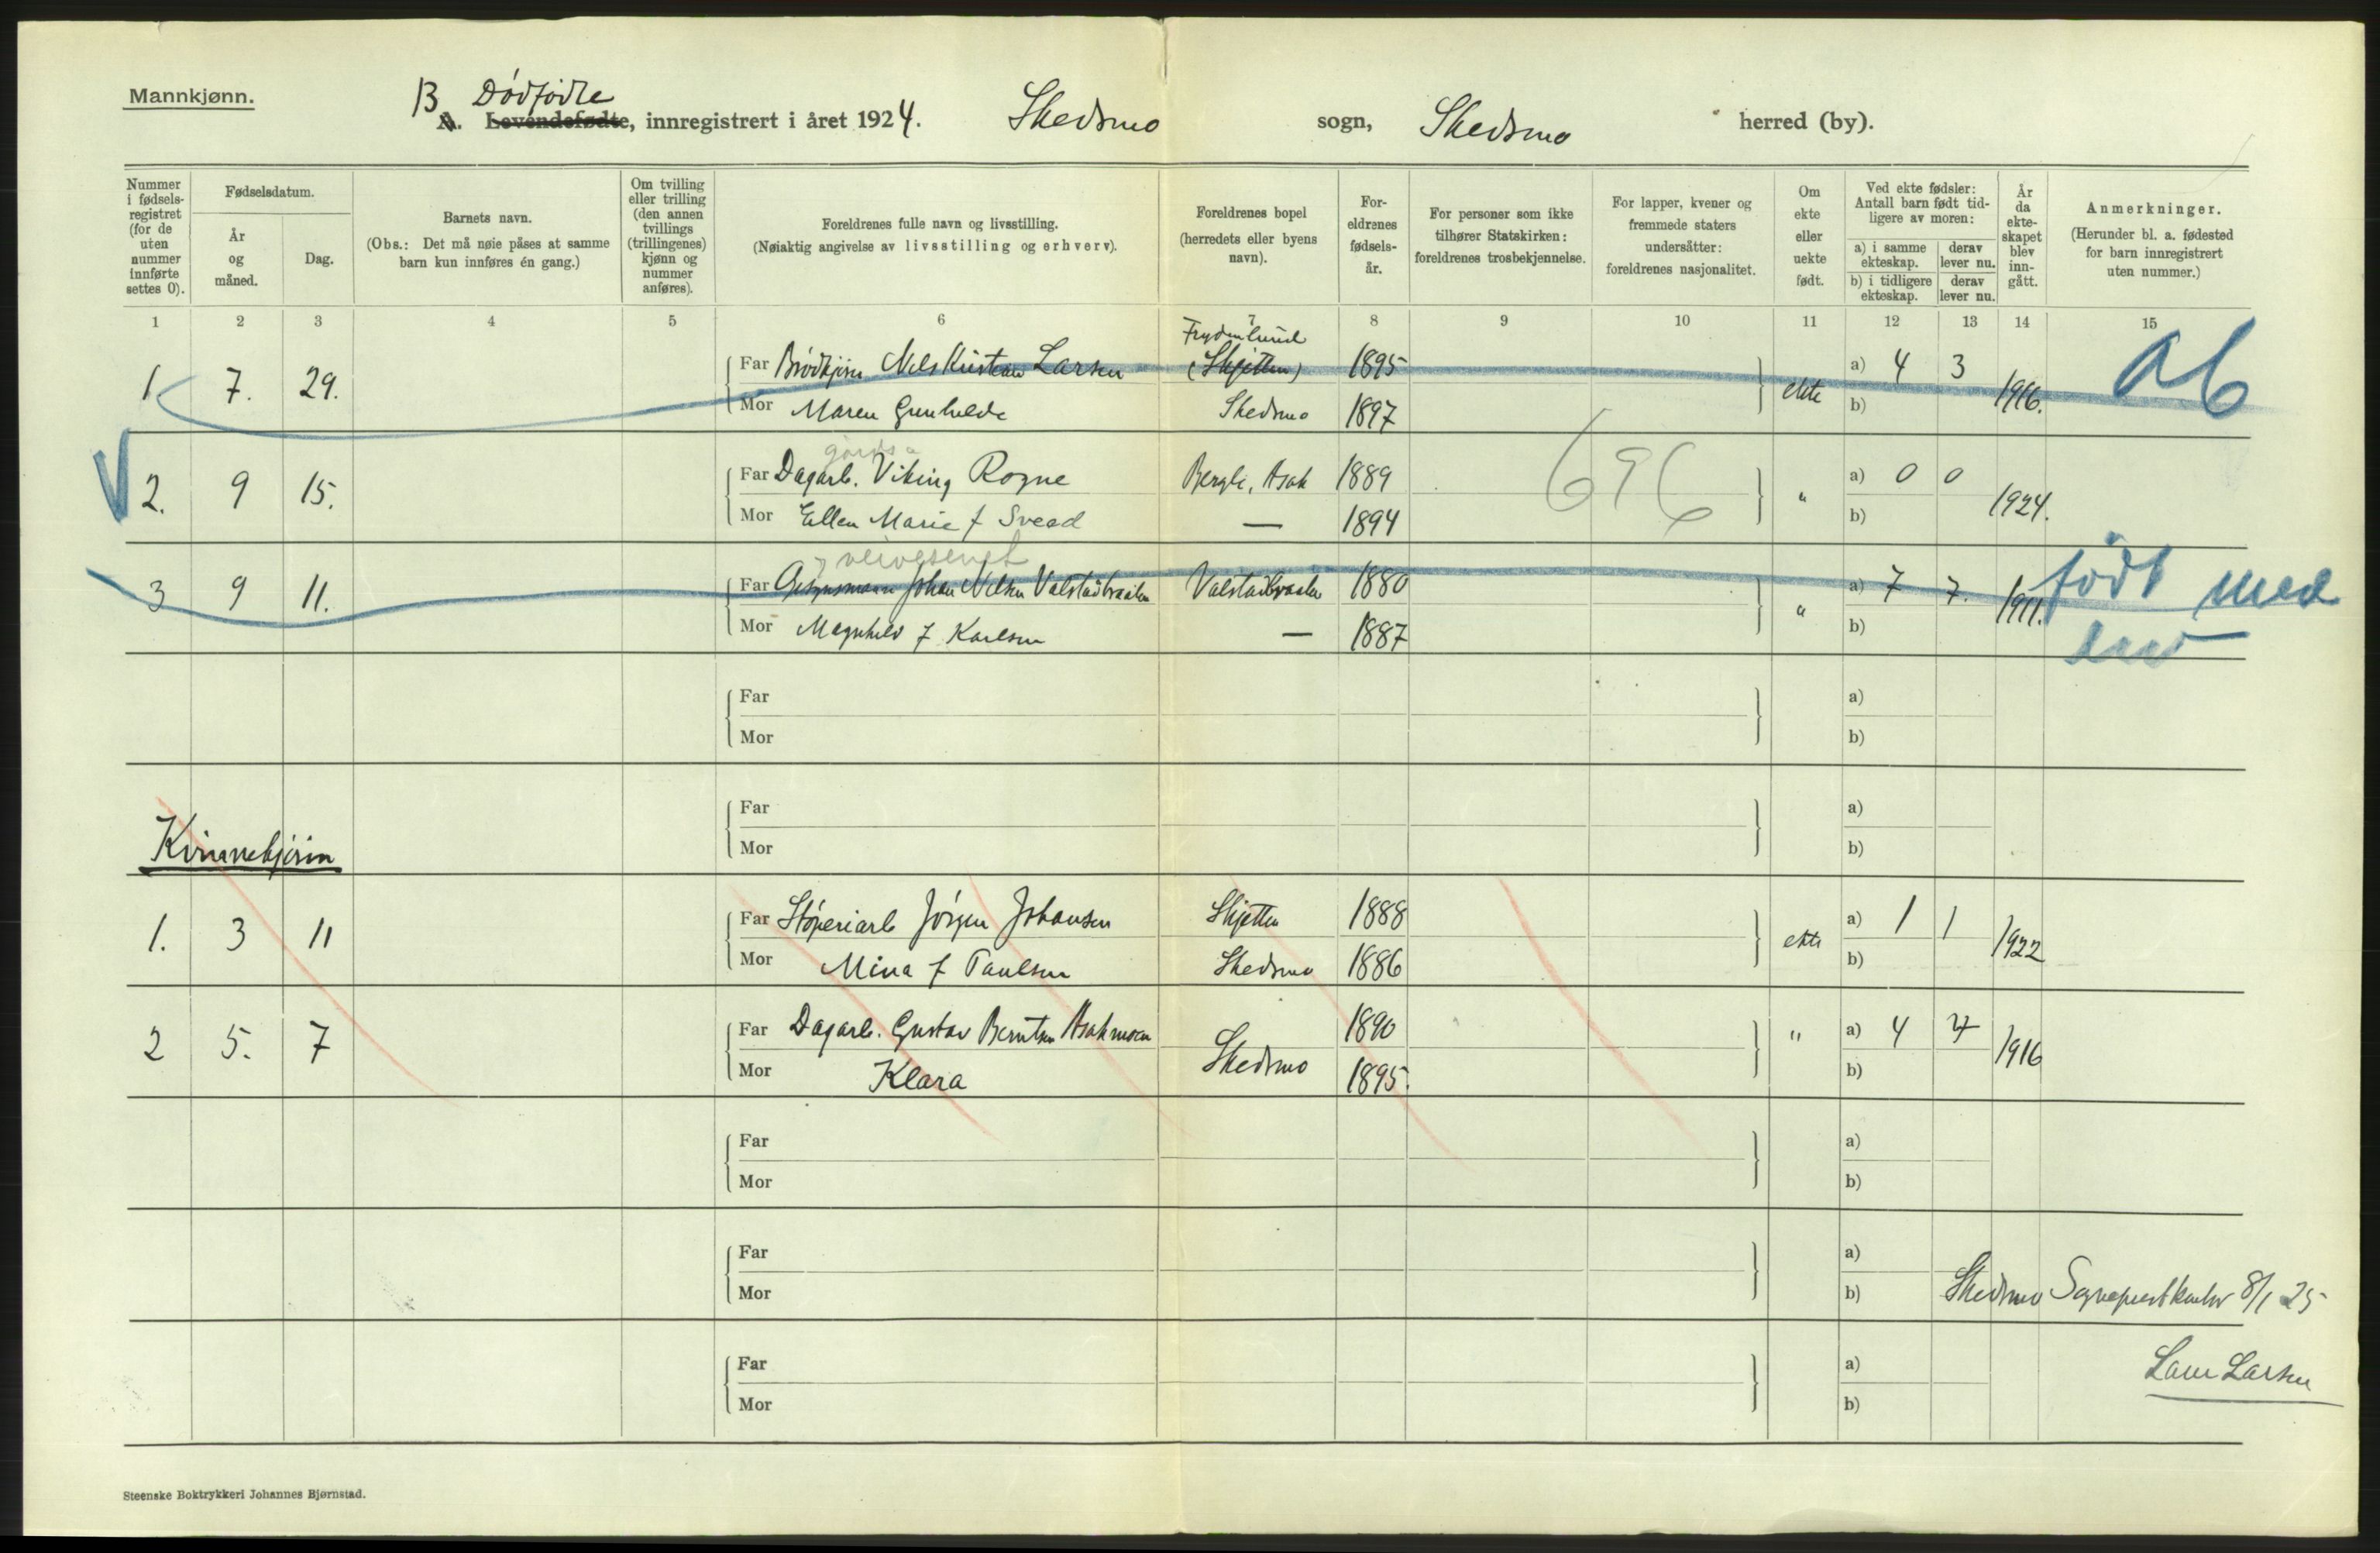 Mannkjønn.
B Dødfødte
A. Levendefødte, innregistrert i året 1924. Skedsmo sogn, Skedsmo herred (by).
Nummer i fødselsregistret (for de uten nummer innførte settes 0).
Fødselsdatum.
År og måned.
Dag.
Barnets navn.
(Obs.: Det må nøie påses at samme barn kun innføres én gang.)
Om tvilling eller trilling (den annen tvillings (trillingenes) kjønn og nummer anføres).
Foreldrenes fulle navn og livsstilling.
(Nøiaktig angivelse av livsstilling og erhverv).
Foreldrenes bopel (herredets eller byens navn).
Foreldrenes fødselsår.
For personer som ikke tilhører Statskirken: foreldrenes trosbekjennelse.
For lapper, kvener og fremmede staters undersåtter: foreldrenes nasjonalitet.
Om ekte eller uekte født.
Ved ekte fødsler: Antall barn født tidligere av moren:
a) i samme ekteskap. derav lever nu.
b) i tidligere ekteskap. derav lever nu.
År da ekteskapet blev inngått.
Anmerkninger.
(Herunder bl. a. fødested for barn innregistrert uten nummer.)
1 2 3 4 5 6 7 8 9 10 11 12 13 14 15
Frydenlund
1 7. 29. Far Nils Kristian Larsen (Skjetten) 1895 ekte a) 4 3 1916. ab
Mor Maren Gunhilde Skedsmo 1897 b)
gårds
2. 9 15. Far Dagarb. Viking Rogne Bergli, Asak 1889 696 " a) 0 0 1924.
Mor Ellen Marie f Svead — 1894 b)
3 9 11. Far Johan Nilsen Valstadbraaten Valstadbraaten 1880 " a) 7 7. 1911. født med
Mor Magnhild f Karlsen — 1887 b)
Far a)
Mor b)
Far a)
Kvinnekjønn Mor b)
1. 3 11 Far Støperiarb Jørgen Johansen Skjetten 1888 ekte a) 1 1 1922
Mor Mina f Paulsen Skedsmo 1886 b)
2 5. 7 Far Dagarb. Gustav Berntsen Asakmoen Skedsmo 1890 " a) 4 4 1916
Mor Klara 1895. b)
Far a)
Mor b)
Far a)
Mor b) Skedsmo Sogneprestkontor 8/1 25
Far a) Larsen
Mor b)
Steenske Boktrykkeri Johannes Bjørnstad.